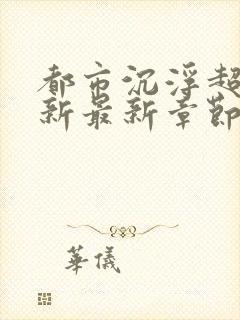 都市沉浮超
新最新章節
華儀